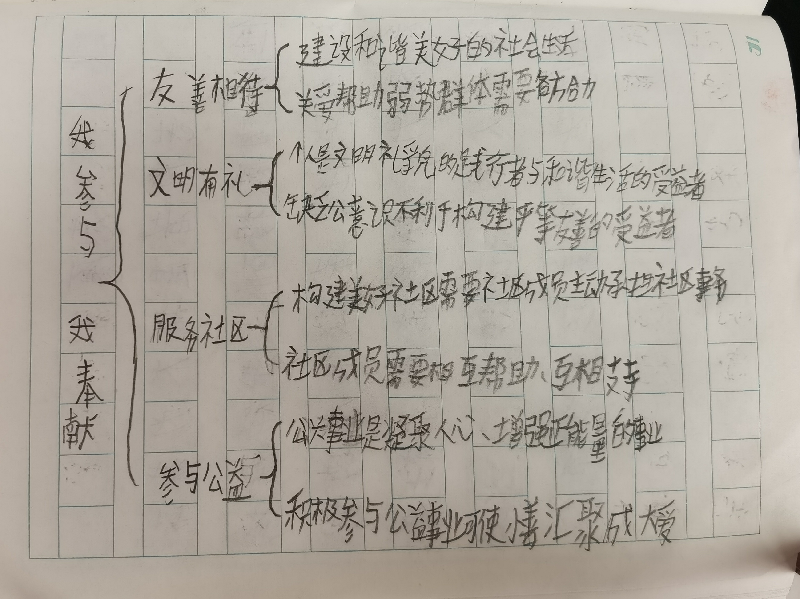 我参与我奉献
友善相待
建设和谐美好的社会生活
关爱帮助弱势群体需要各方合力
文明有礼
个人是文明礼貌的践行者与和谐生活的受益者
缺乏公意识不利于构建平等友善的受益者
服务社区
构建美好社区需要社区成员主动承担社区事务
社区成员需要相互帮助、互相支持
参与公益
公益事业是凝聚人心、增强正能量的事业
积极参与公益事业可使小善汇聚成大爱